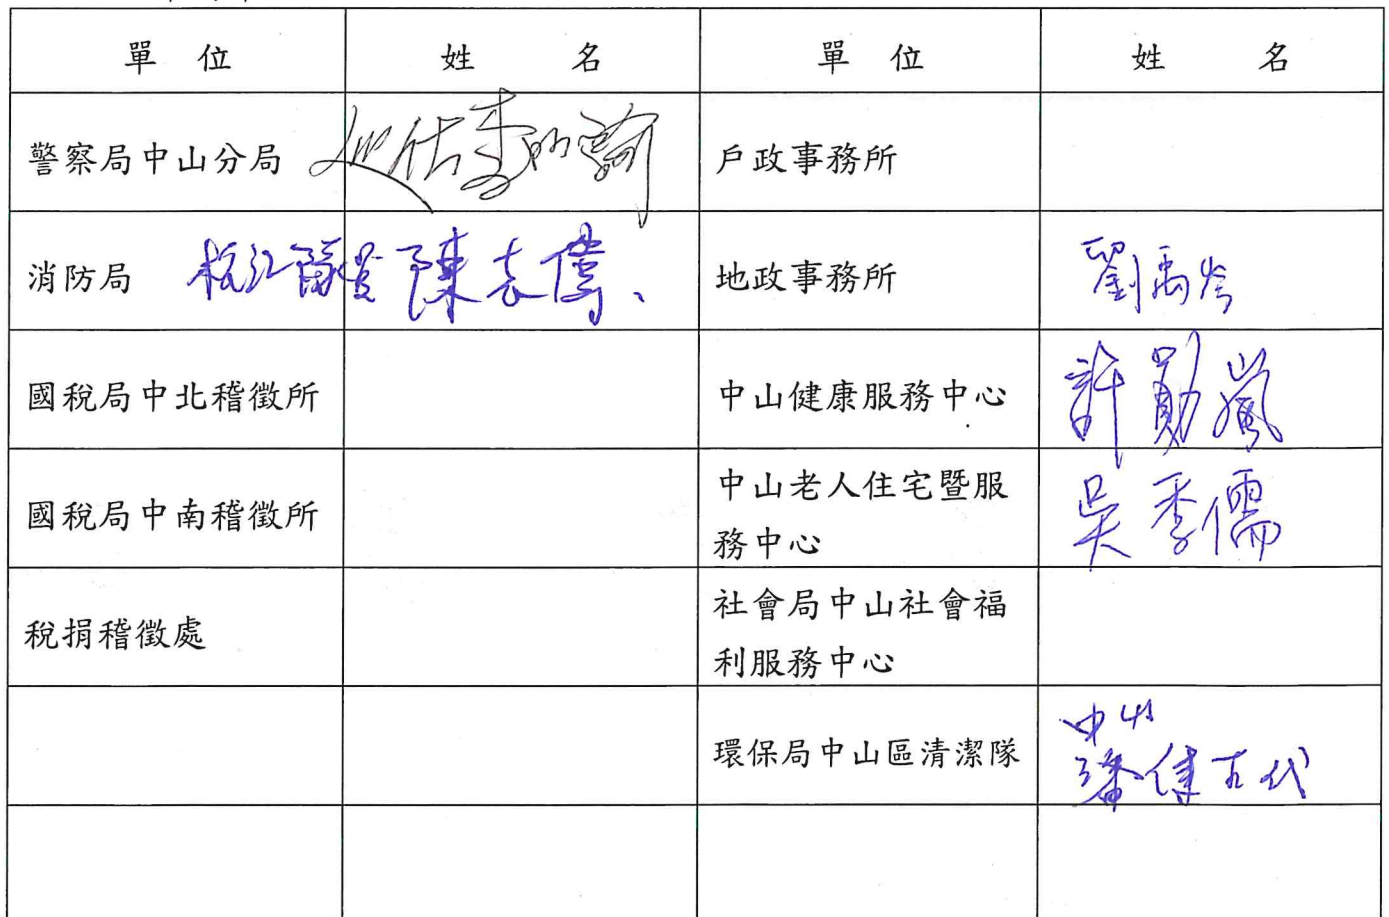 單 位 姓 名 單 位 姓 名
警察局中山分局 戶政事務所
消防局 陳 偉、 地政事務所 劉禹岑
國稅局中北稽徵所 中山健康服務中心 許勛嵐
國稅局中南稽徵所 中山老人住宅暨服
務中心 吳季儒
稅捐稽徵處 社會局中山社會福
利服務中心
環保局中山區清潔隊 中山
潘 代